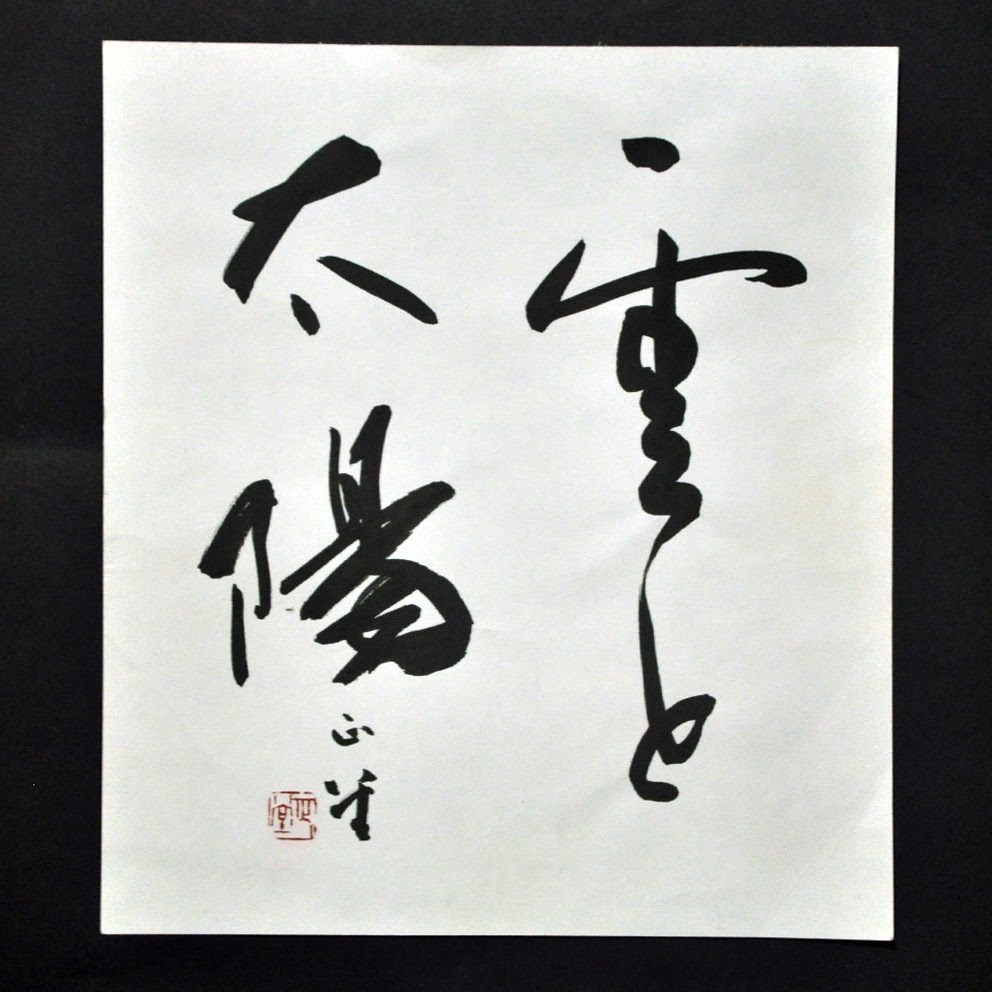 雲と
太陽
正堂